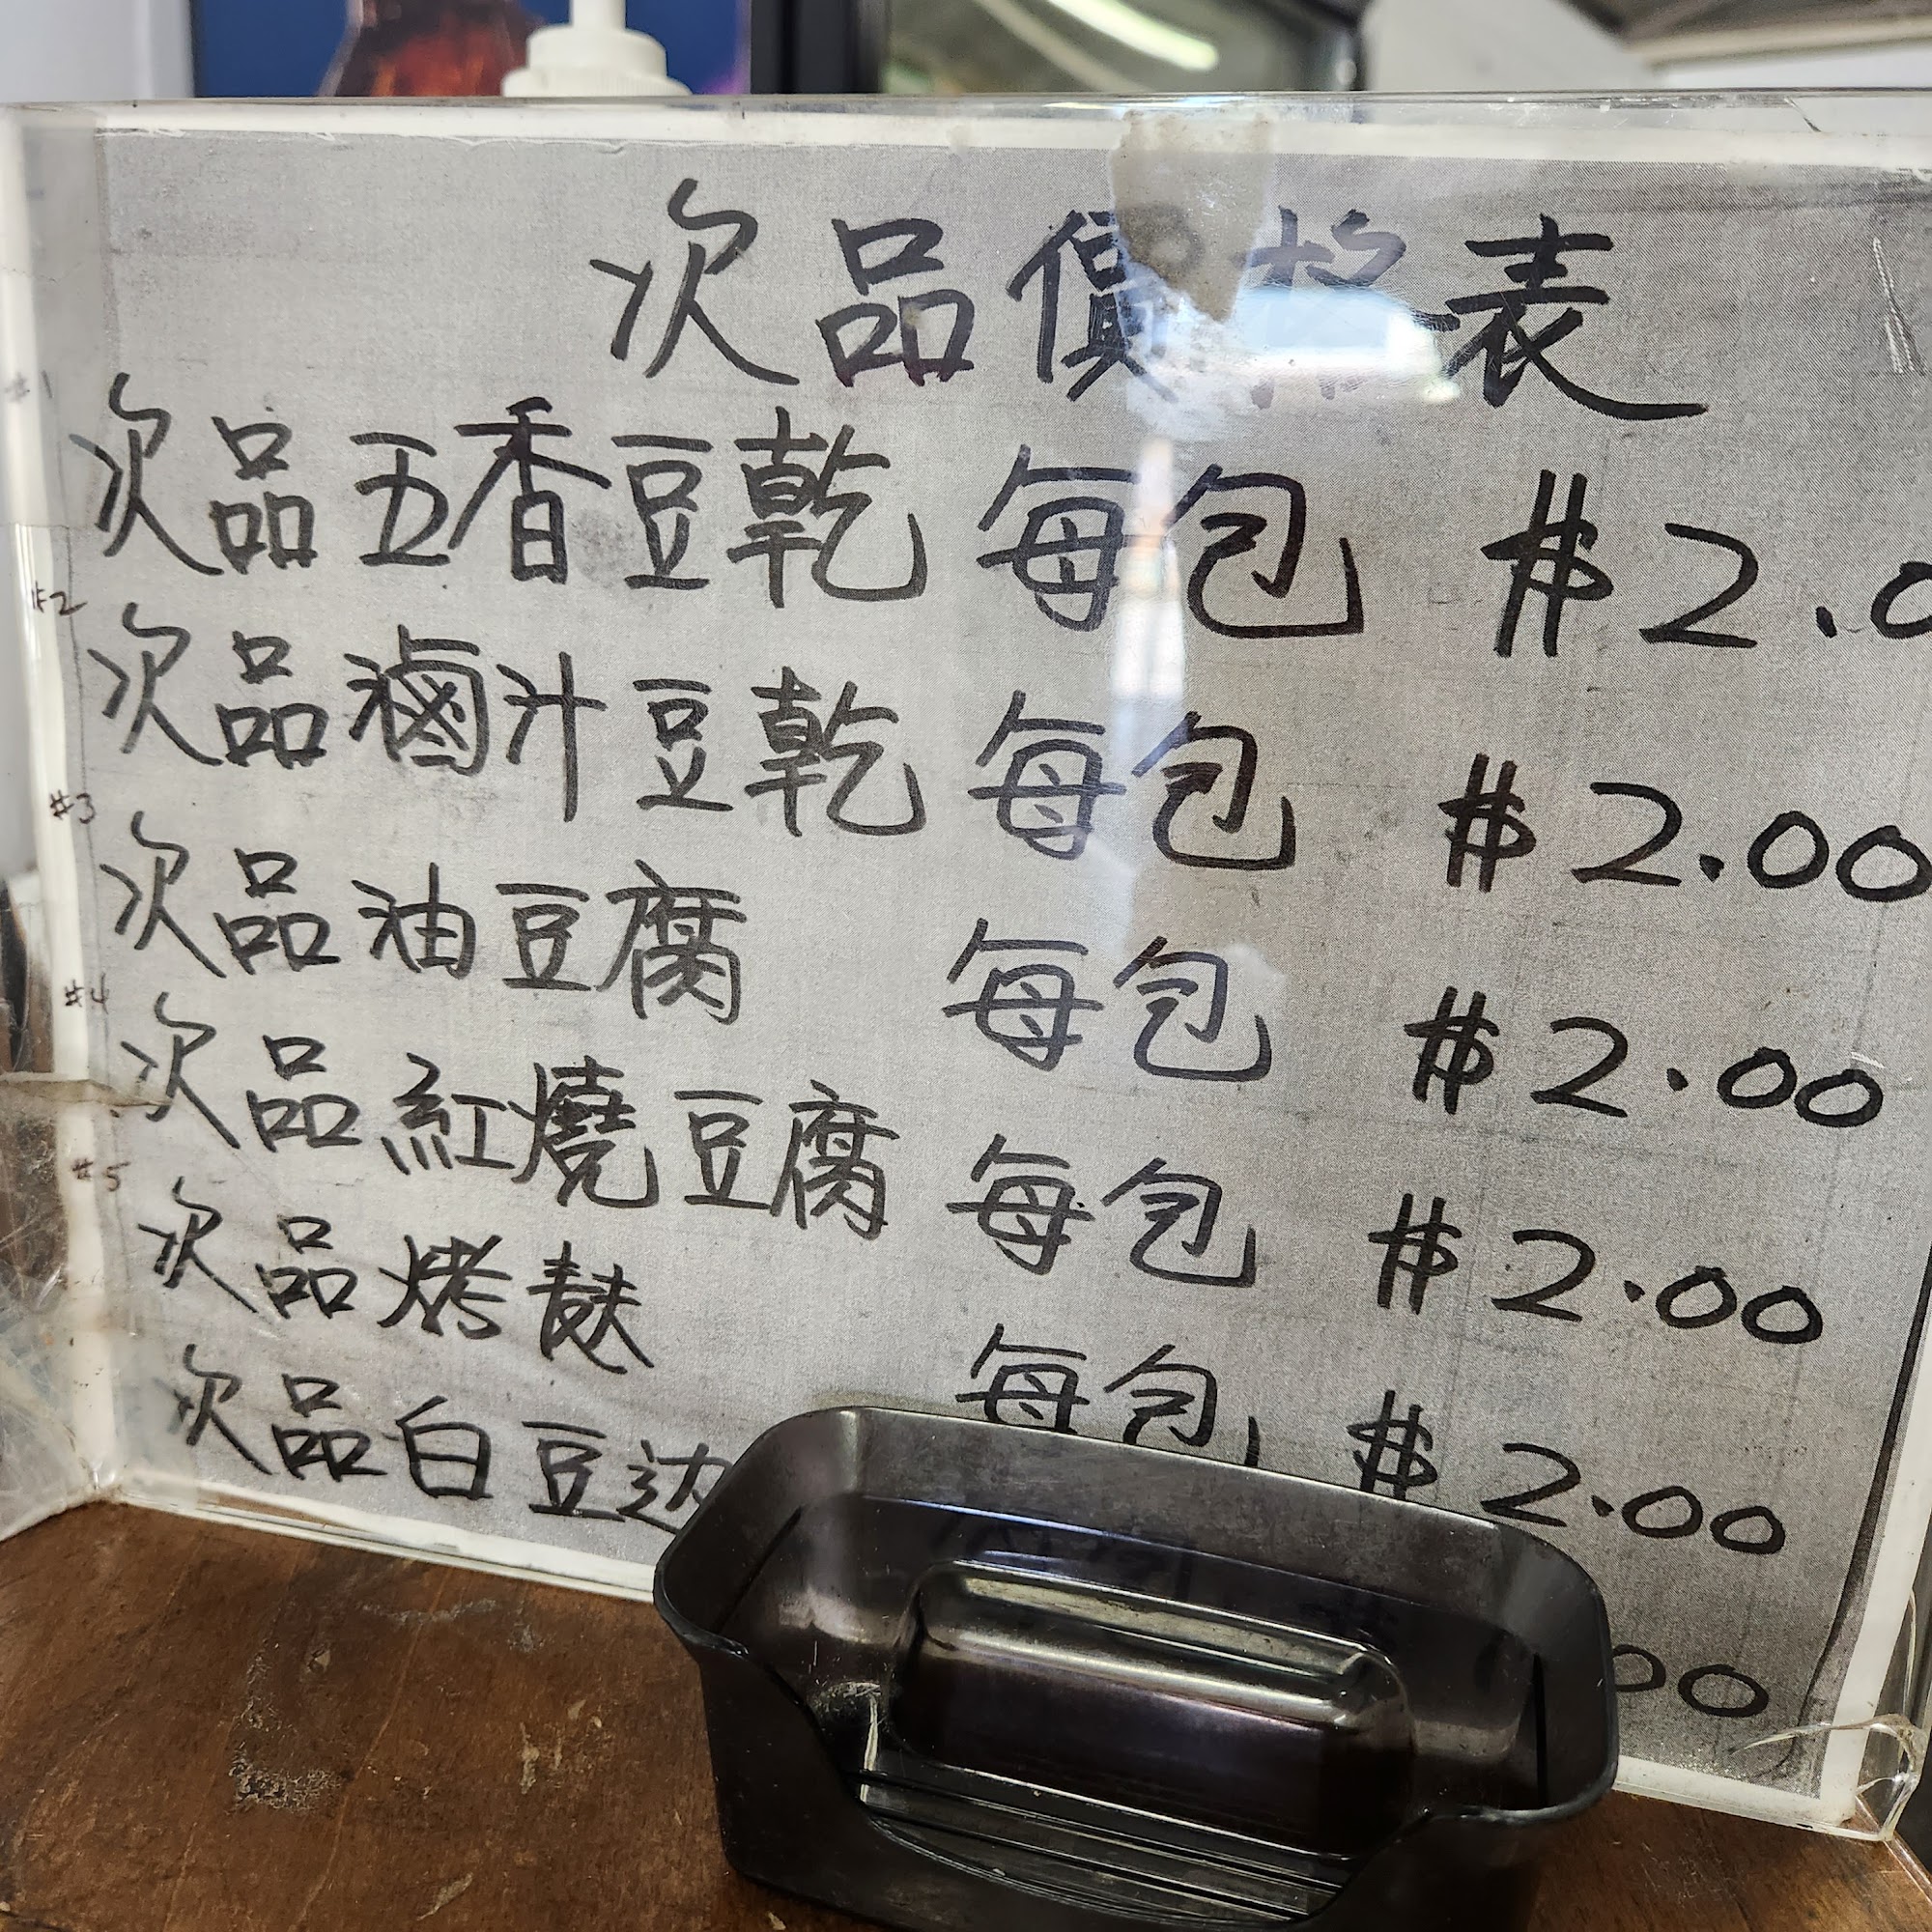 次品價格表
次品五香豆乾 每包 $2.0
#2
次品滷汁豆乾 每包 $2.00
#3
次品油豆腐 每包 $2.00
#4
次品紅燒豆腐 每包 $2.00
#5
次品烤麩 每包 $2.00
次品白豆边 00